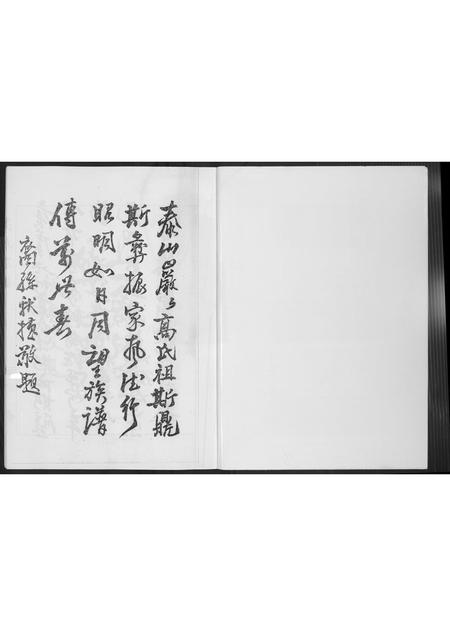 泰山巖々高氏祖斯鼎
斯彝振家聲德行
昭明如日月望族譜
傳萬世春
裔孫秋
敬題